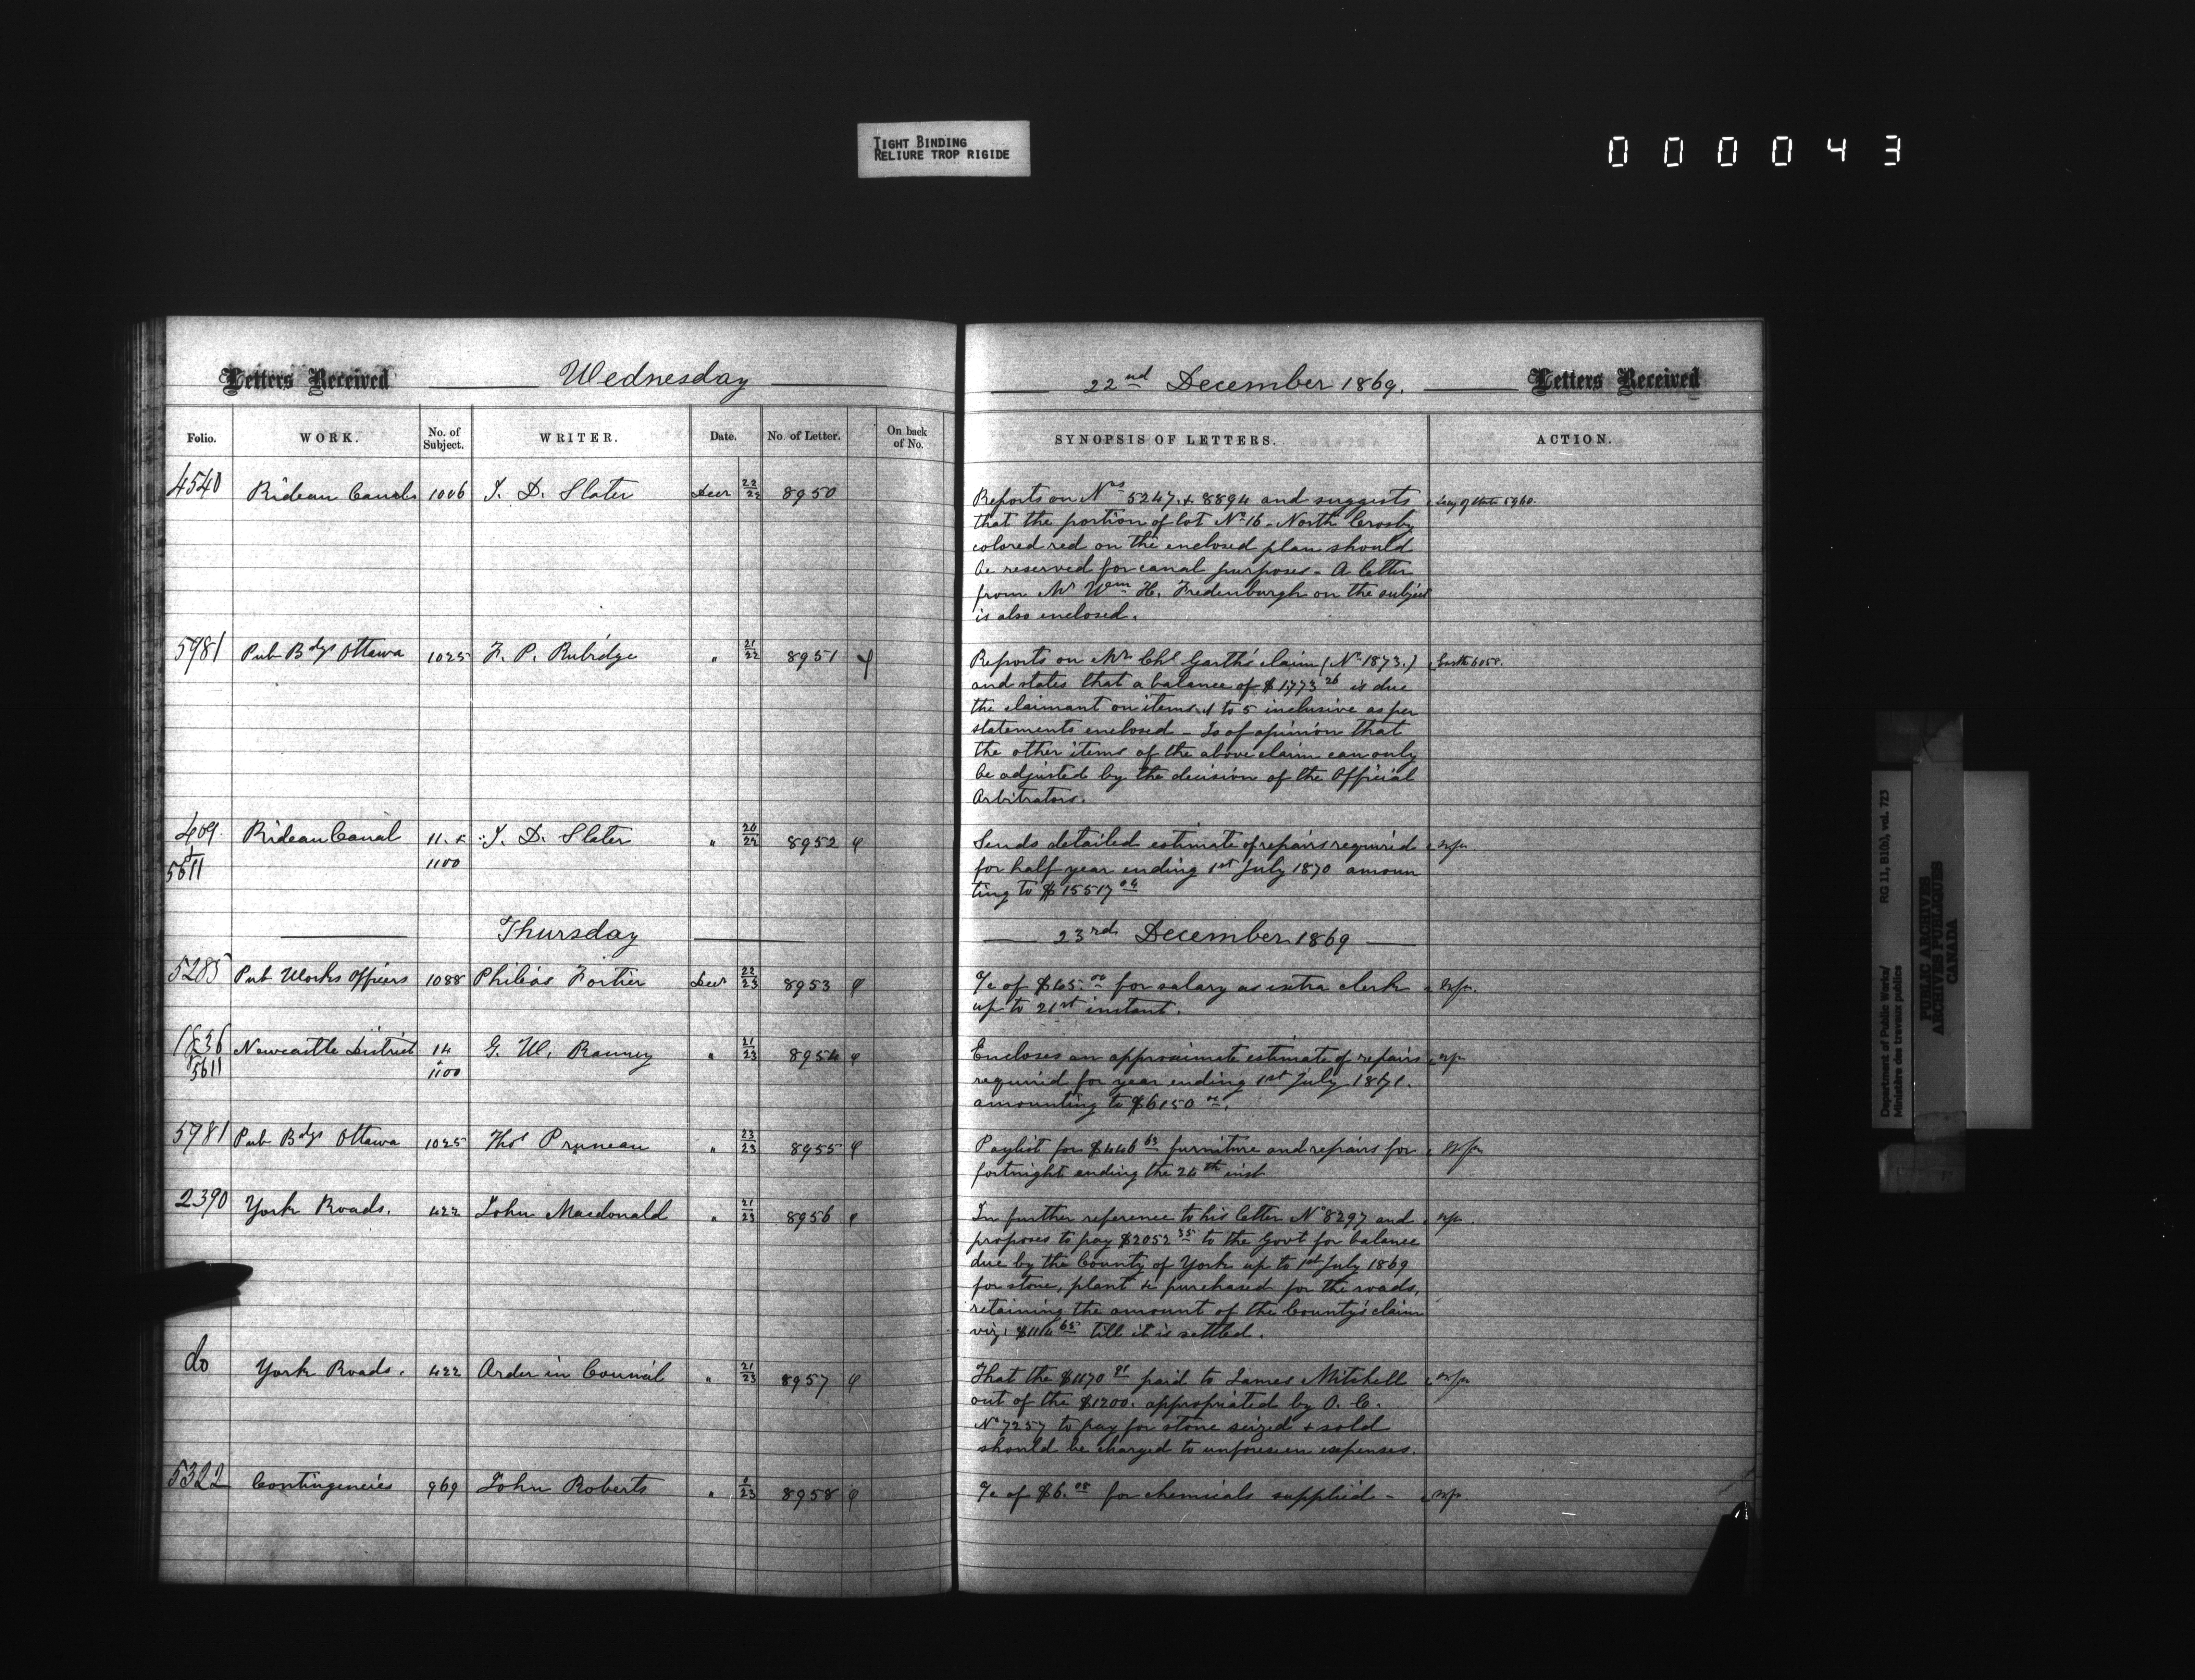 TIGHT BINDING
RELIURE TROP RIGIDE
000043
Letters Received Wednesday
22nd December 1869. Letters Received
Folio. WORK. No. of Subject. WRITER. Date. No. of Letter. On back of No.
SYNOPSIS OF LETTERS. ACTION.
4540 Rideau Canals 1006 J. D. Slater Decr 22/22 8950
Reports on Nos 5247 & 8894 and suggests Secy of State 5960.
that the portion of lot No 16 - North Crosby
colored red on the enclosed plan should
be reserved for canal purposes - A letter
from Mr Wm H. Fredenburgh on the subject
is also enclosed.
5981 Pub Bdgs Ottawa 1025 F. P. Rubidge " 21/22 8951
Reports on Mr Chs Garth's claim (No 1873.) Garth 6058.
and states that a balance of $1773 26 is due
the claimant on items 1 to 5 inclusive as per
statements enclosed - Is of opinion that
the other items of the above claim can only
be adjusted by the decision of the Official
Arbitrators.
409 & 5611 Rideau Canal 11. & 1100 J. D. Slater " 20/22 8952
Sends detailed estimate of repairs required
for half year ending 1st July 1870 amoun
ting to $15517
Thursday
23rd December 1869
5285 Pub Works Officers 1088 Philéas Fortier Decr 22/23 8953
a/c of $65.00 for salary as extra clerk
up to 21st instant.
1836 & 5611 Newcastle District 14 & 1100 G. W. Ranney " 21/23 8954
Encloses an approximate estimate of repairs
required for year ending 1st July 1871.
amounting to $6150 00.
5981 Pub Bdgs Ottawa 1025 Thos Pruneau " 23/23 8955
Paylist for $446 63 furniture and repairs for
fortnight ending the 24th inst
2390 York Roads. 422 John Macdonald " 21/23 8956
In further reference to his letter No 8297 and
proposes to pay $2052 35 to the Govt for balance
due by the County of York up to 1st July 1869
for stone, plant &c purchased for the roads,
retaining the amount of the County's claim
viz: till it is settled.
do York Roads. 422 Order in Council " 21/23 8957
That the $1170 91 paid to James Mitchell
out of the $1200. appropriated by O. C.
No 7257 to pay for stone seized & sold
should be charged to unforeseen expenses.
5322 Contingencies 969 John Roberts " 8958
a/c of $6. 08 for chemicals supplied -
Department of Public Works/ RG 11, B1(b), vol. 723
Ministère des travaux publics
PUBLIC ARCHIVES
ARCHIVES PUBLIQUES
CANADA